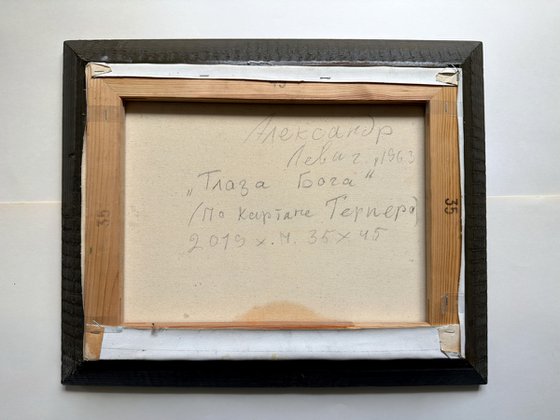 Александр
Левич, 1963
„Глаза Бога"
(По картине Гернера)
2019 х.м. 35х45
35
35